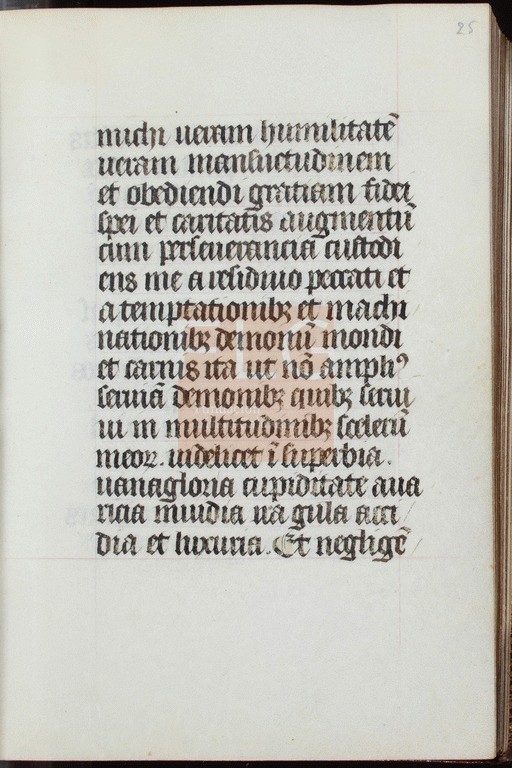 25
michi ueram humilitatē
ueram mansuetudinem
et obediendi gratiam fidei
spei et caritatis augmentū
cum perseuerancia custodi
ens me a residiuo peccati et
a temptationibꝫ et machi
nationibꝫ demonū mondi
et carnis ita ut nō amplꝰ
seruiā demonibꝫ quibꝫ serui
ui in multitudinibꝫ scelerū
meoꝝ. uidelicet ī superbia.
uanagloria cupiditate aua
ricia inuidia ira gula acci
dia et luxuria. Et negligē